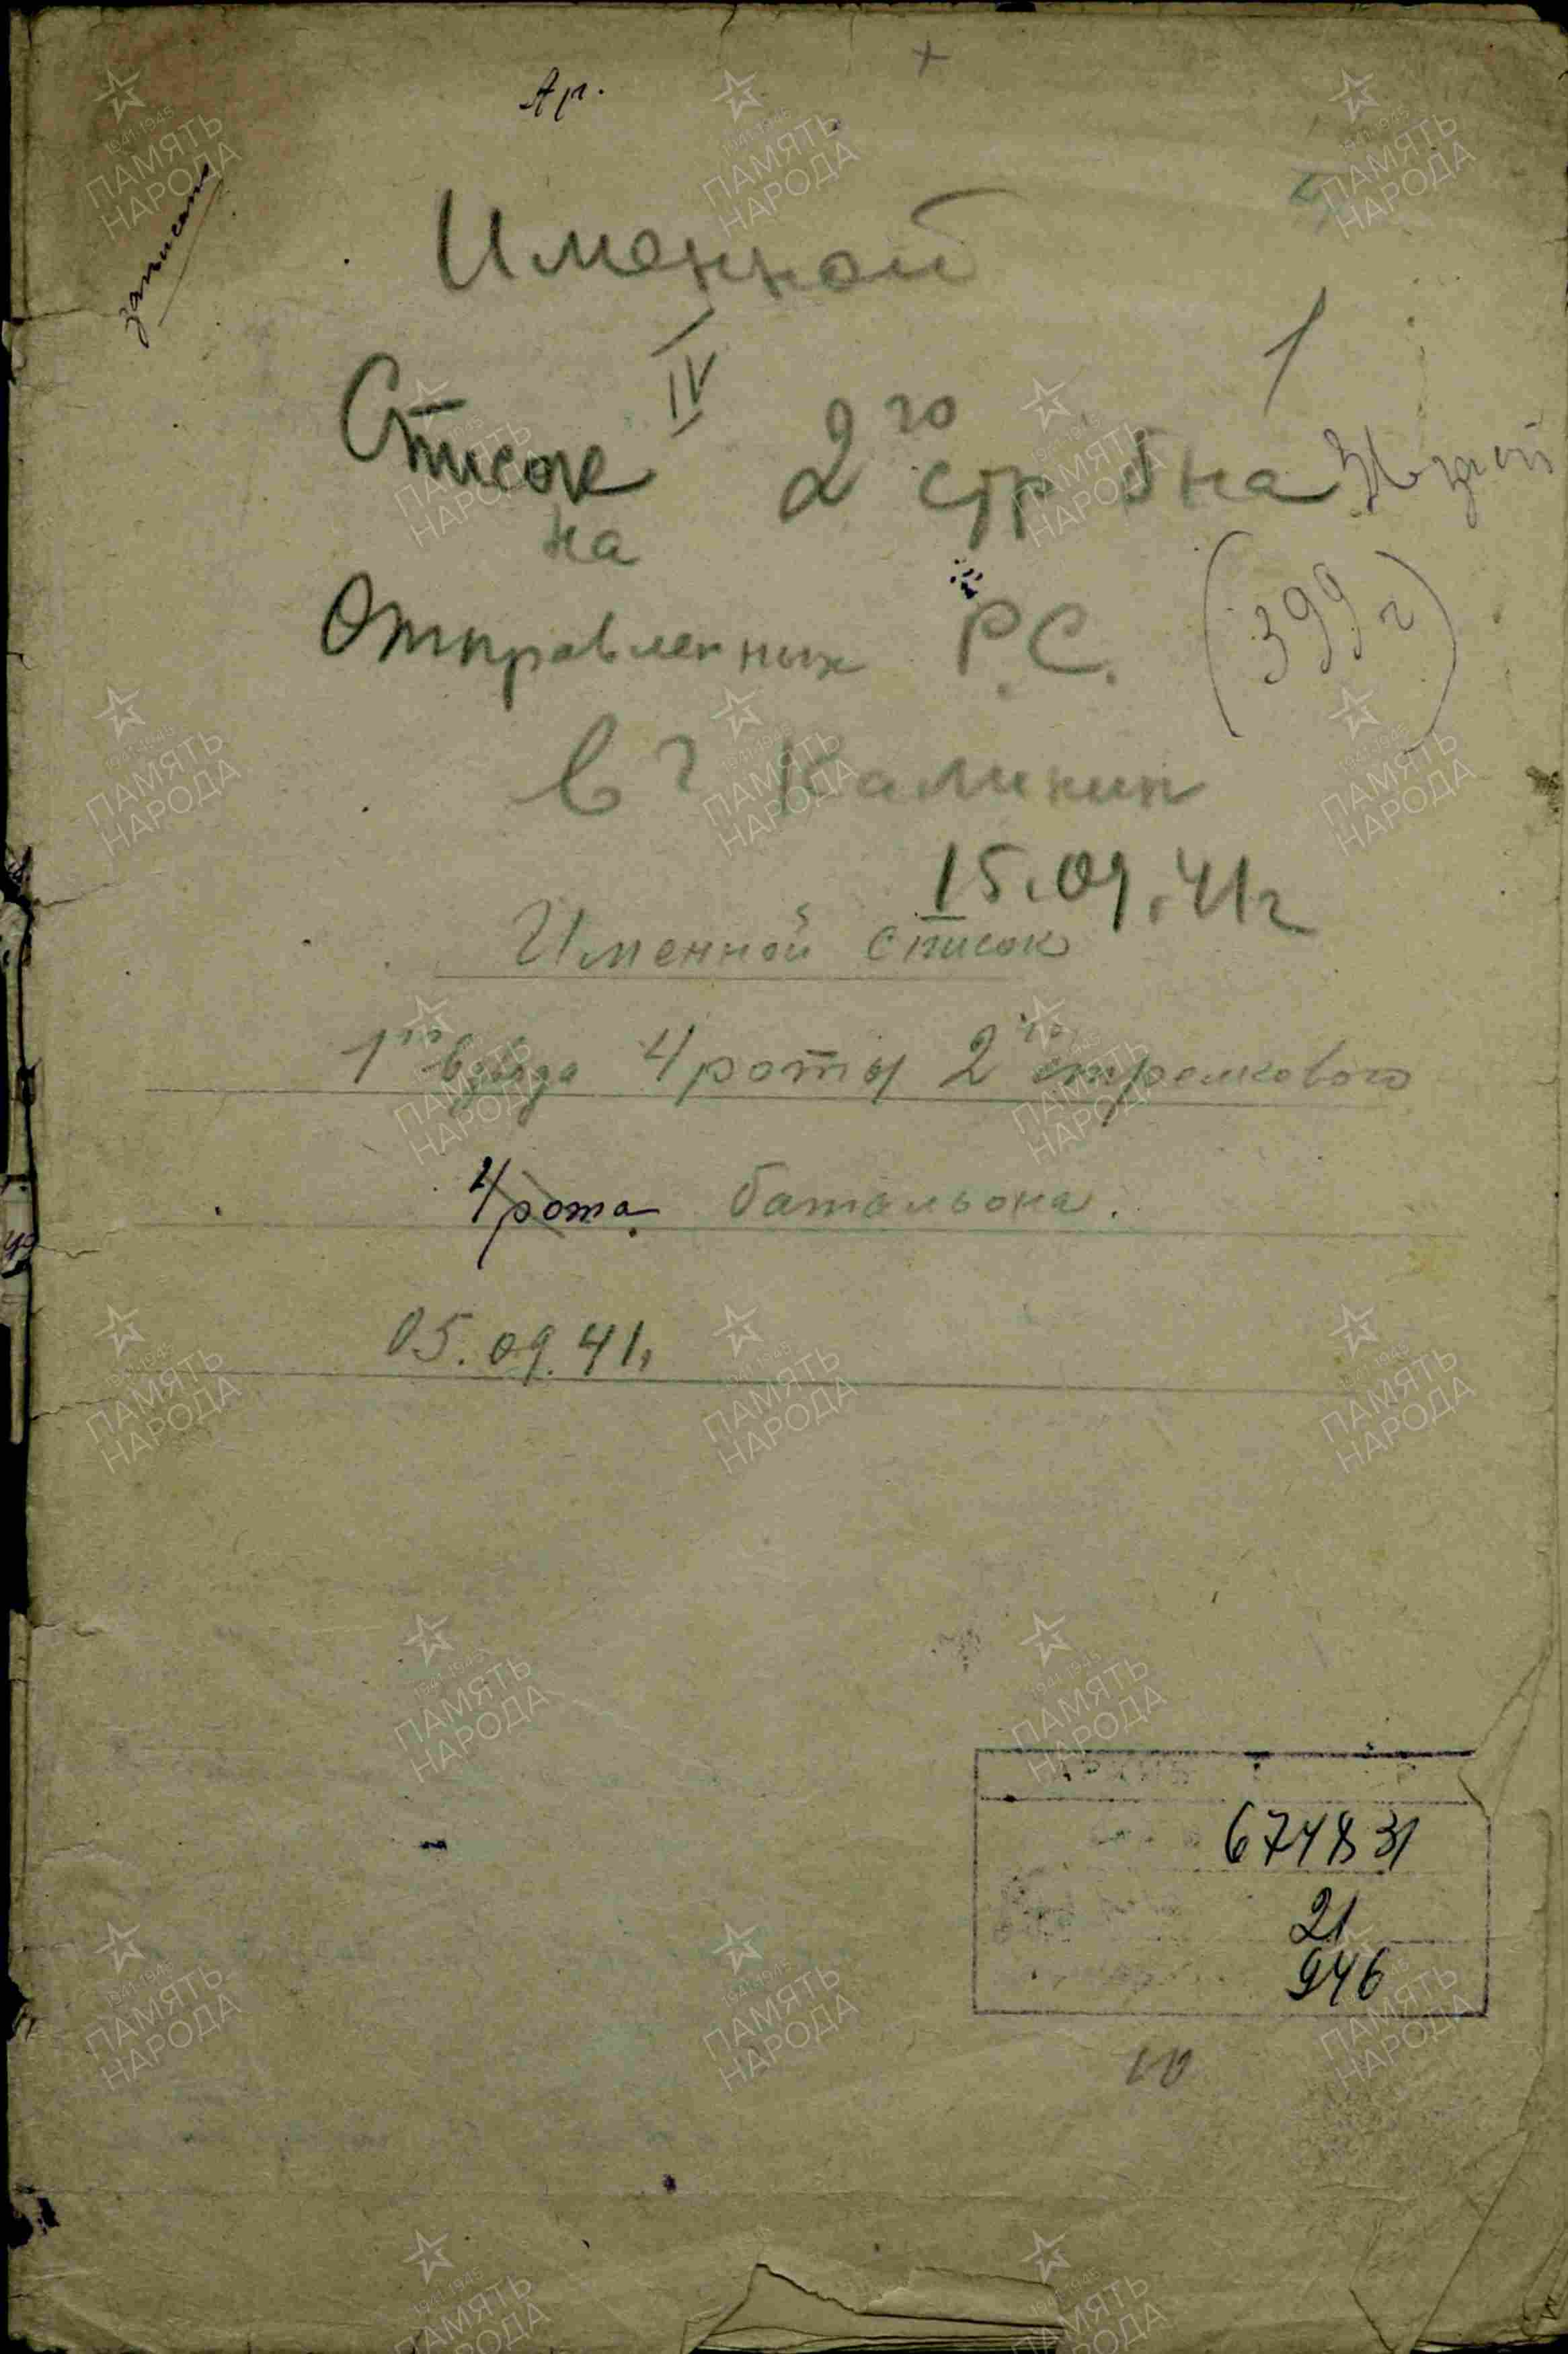 Ар.
записано
Именной
1
IV
Список 2го стр б на
на
Отправленных Р.С. (399 г)
в г Калинин
15.09.41г
Именной список
1го взвода 4 роты 2го стрелкового
4 рота батальона.
05.09.41.
674831
21
946
10
1941-1945
ПАМЯТЬ
НАРОДА